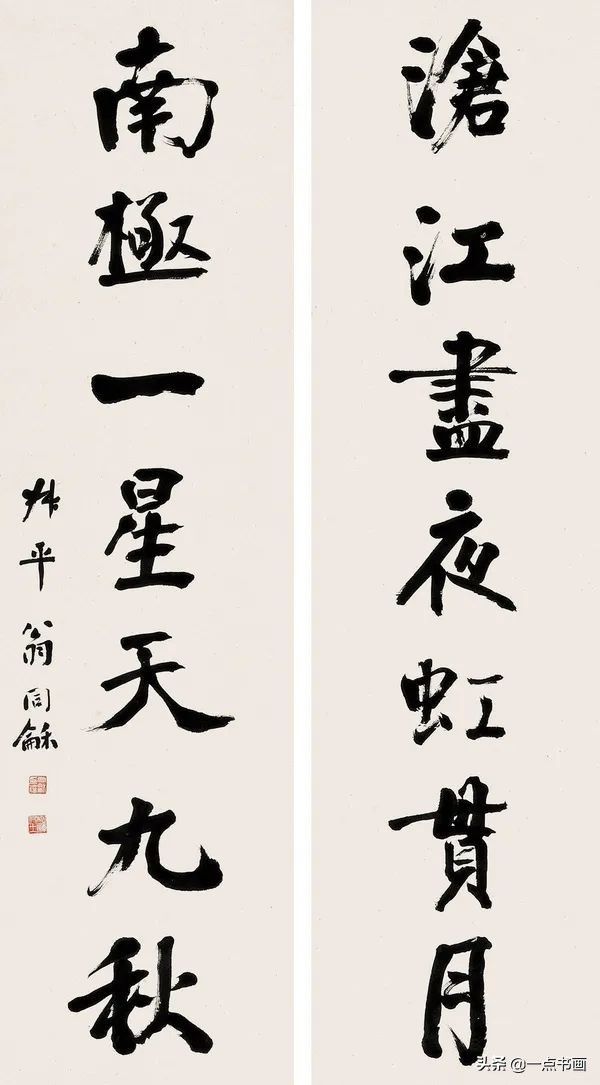 滄江盡夜虹貫月
南極一星天九秋
叔平翁同龢
头条 @一点书画